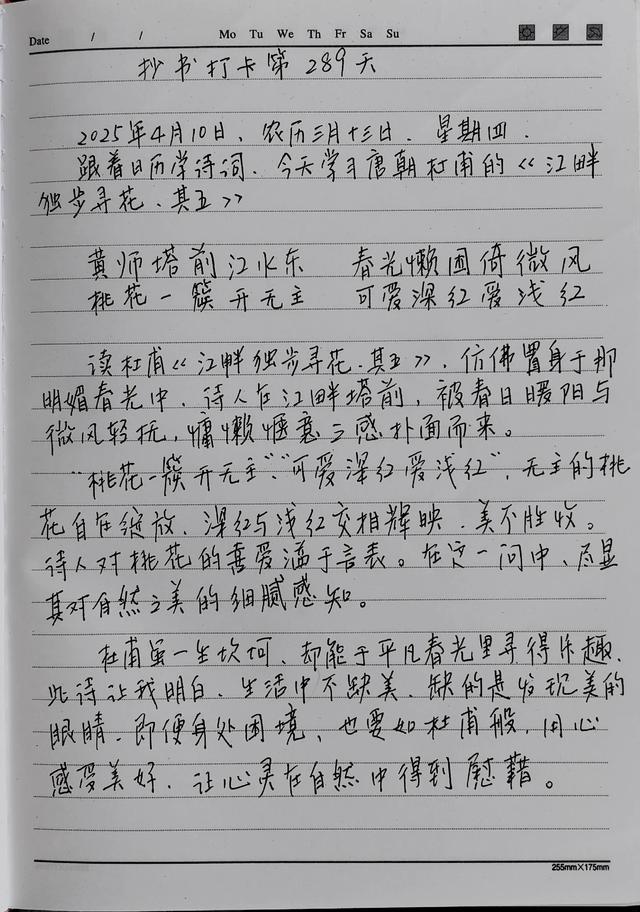 Date / / Mo Tu We Th Fr Sa Su
抄书打卡第289天
2025年4月10日、农历三月十三日、星期四.
跟着日历学诗词、今天学习唐朝杜甫的《江畔
独步寻花、其五》
黄师塔前江水东 春光懒困倚微风
桃花一簇开无主 可爱深红爱浅红
读杜甫《江畔独步寻花.其五》,仿佛置身于那
明媚春光中、诗人在江畔塔前,被春日暖阳与
微风轻抚,慵懒惬意之感扑面而来。
“桃花一簇开无主”“可爱深红爱浅红”,无主的桃
花自在绽放、深红与浅红交相辉映、美不胜收。
诗人对桃花的喜爱溢于言表。在这一问中、尽显
其对自然之美的细腻感知。
杜甫虽一生坎坷、却能于平凡春光里寻得乐趣、
此诗让我明白、生活中不缺美、缺的是发现美的
眼睛、即便身处困境、也要如杜甫般、用心
感受美好、让心灵在自然中得到慰藉。
255mm×175mm